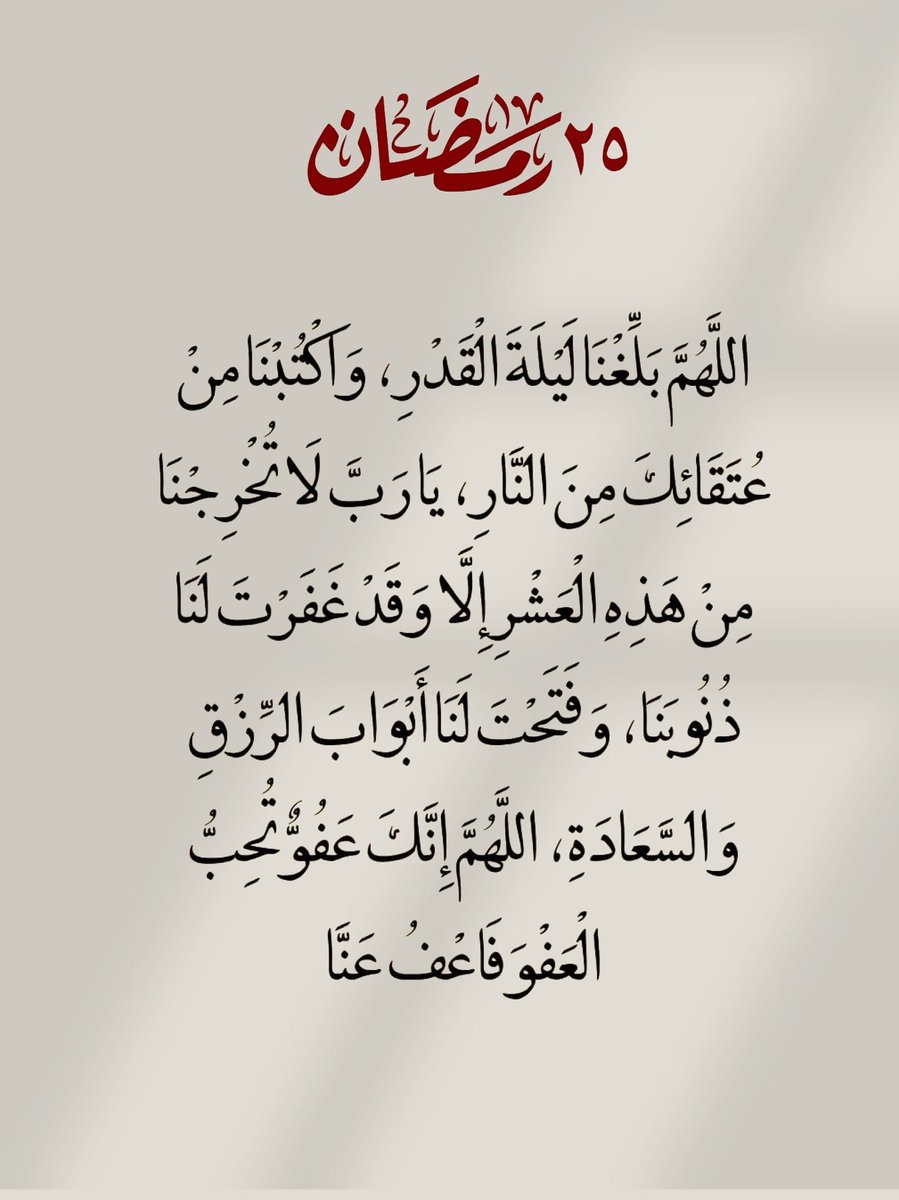 ٢٥ رمضان
اللَّهُمَّ بَلِّغْنَا لَيْلَةَ الْقَدْرِ، وَاكْتُبْنَا مِنْ
عُتَقَائِكَ مِنَ النَّارِ، يَا رَبَّ لَا تُخْرِجْنَا
مِنْ هَذِهِ الْعَشْرِ إِلَّا وَقَدْ غَفَرْتَ لَنَا
ذُنُوبَنَا، وَفَتَحْتَ لَنَا أَبْوَابَ الرِّزْقِ
وَالسَّعَادَةِ، اللَّهُمَّ إِنَّكَ عَفُوٌّ تُحِبُّ
الْعَفْوَ فَاعْفُ عَنَّا